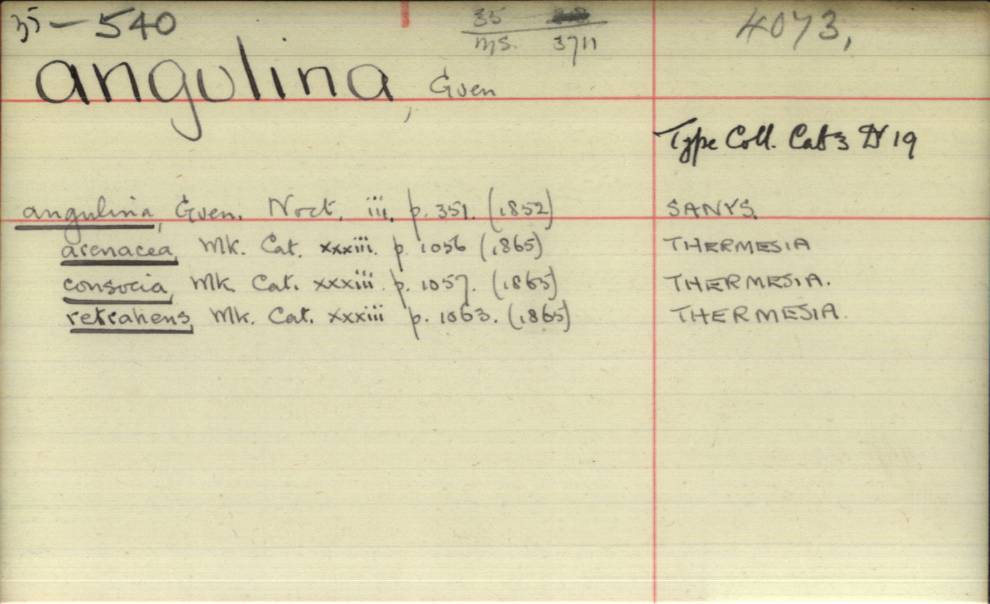 35 — 540
35
ms. 3711
4073,
angulina, Guen
Type Coll. Cab 3 Dr 19
angulina, Guen. Noct. iii. p. 351. (1852) SANYS.
arenacea, Wlk. Cat. xxxiii. p. 1056 (1865) THERMESIA
consocia, Wlk. Cat. xxxiii. p. 1057. (1865) THERMESIA.
retrahens, Wlk. Cat. xxxiii p. 1063. (1865) THERMESIA.